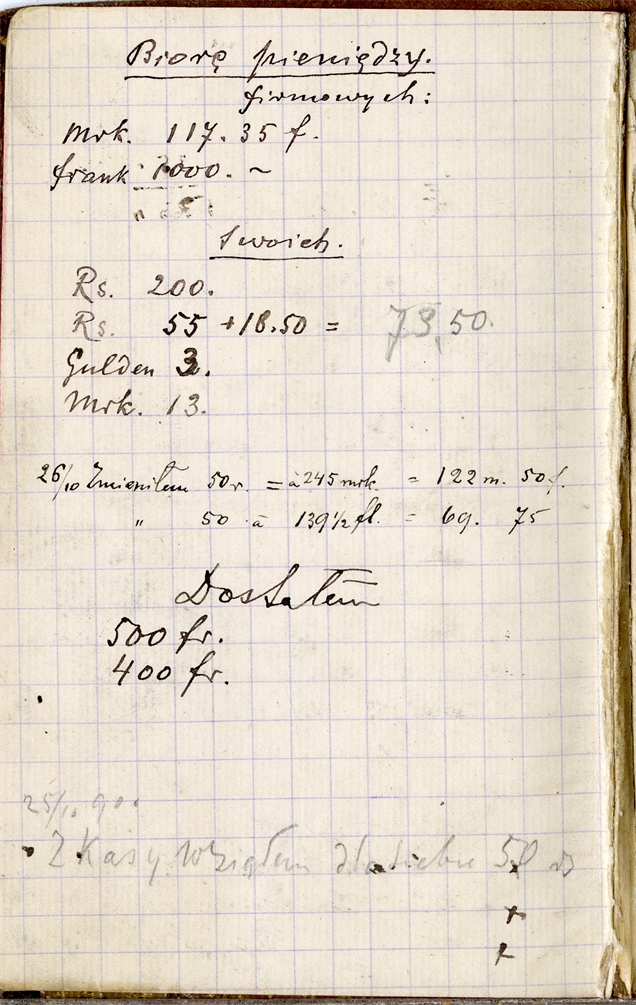 Biorę pieniędzy.
firmowych:
Mrk. 117.35 f.
frank 1000. ~
Swoich.
Rs. 200.
Rs. 55 + 18.50 = 73,50.
Gulden 3.
Mrk. 13.
26/10 Zmieniłem 50 r. = à 245 mrk. = 122 m. 50 f.
" 50 à 139 1/2 fl. = 69. 75
Dostałem
500 fr.
400 fr.
25/10 90.
Z Kasy wziąłem dla siebie